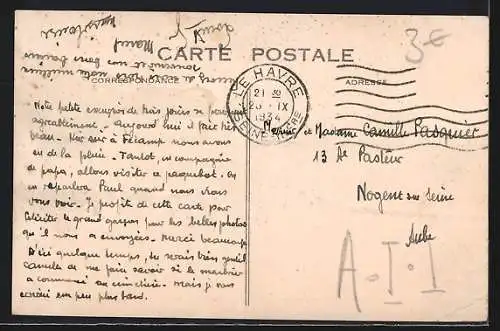 CARTE POSTALE
CORRESPONDANCE
ADRESSE
3€
LE HAVRE
21 30
20 IX
1934
SEINE INFRE
Notre petite excursion de trois jours se poursuit
agréablement. Aujourd'hui il fait très
beau. Hier soir à Fécamp nous avons
eu de la pluie. Tantôt, en compagnie
de papa, allons visiter ce paquebot. On
en reparlera Paul quand nous nous
voir. Je profite de cette carte pour
féliciter le grand garçon pour les belles photos
qu'il nous a envoyées. Merci beaucoup.
D'ici quelque temps, tu serais bien gentil
Camille de me faire savoir si le marbrier
a commencé au cimetière. Mais je vous
écrirai un peu plus tard.
Monsieur et Madame Camille Pasquier
13 Av Pasteur
Nogent sur Seine
Aube
A-I-1